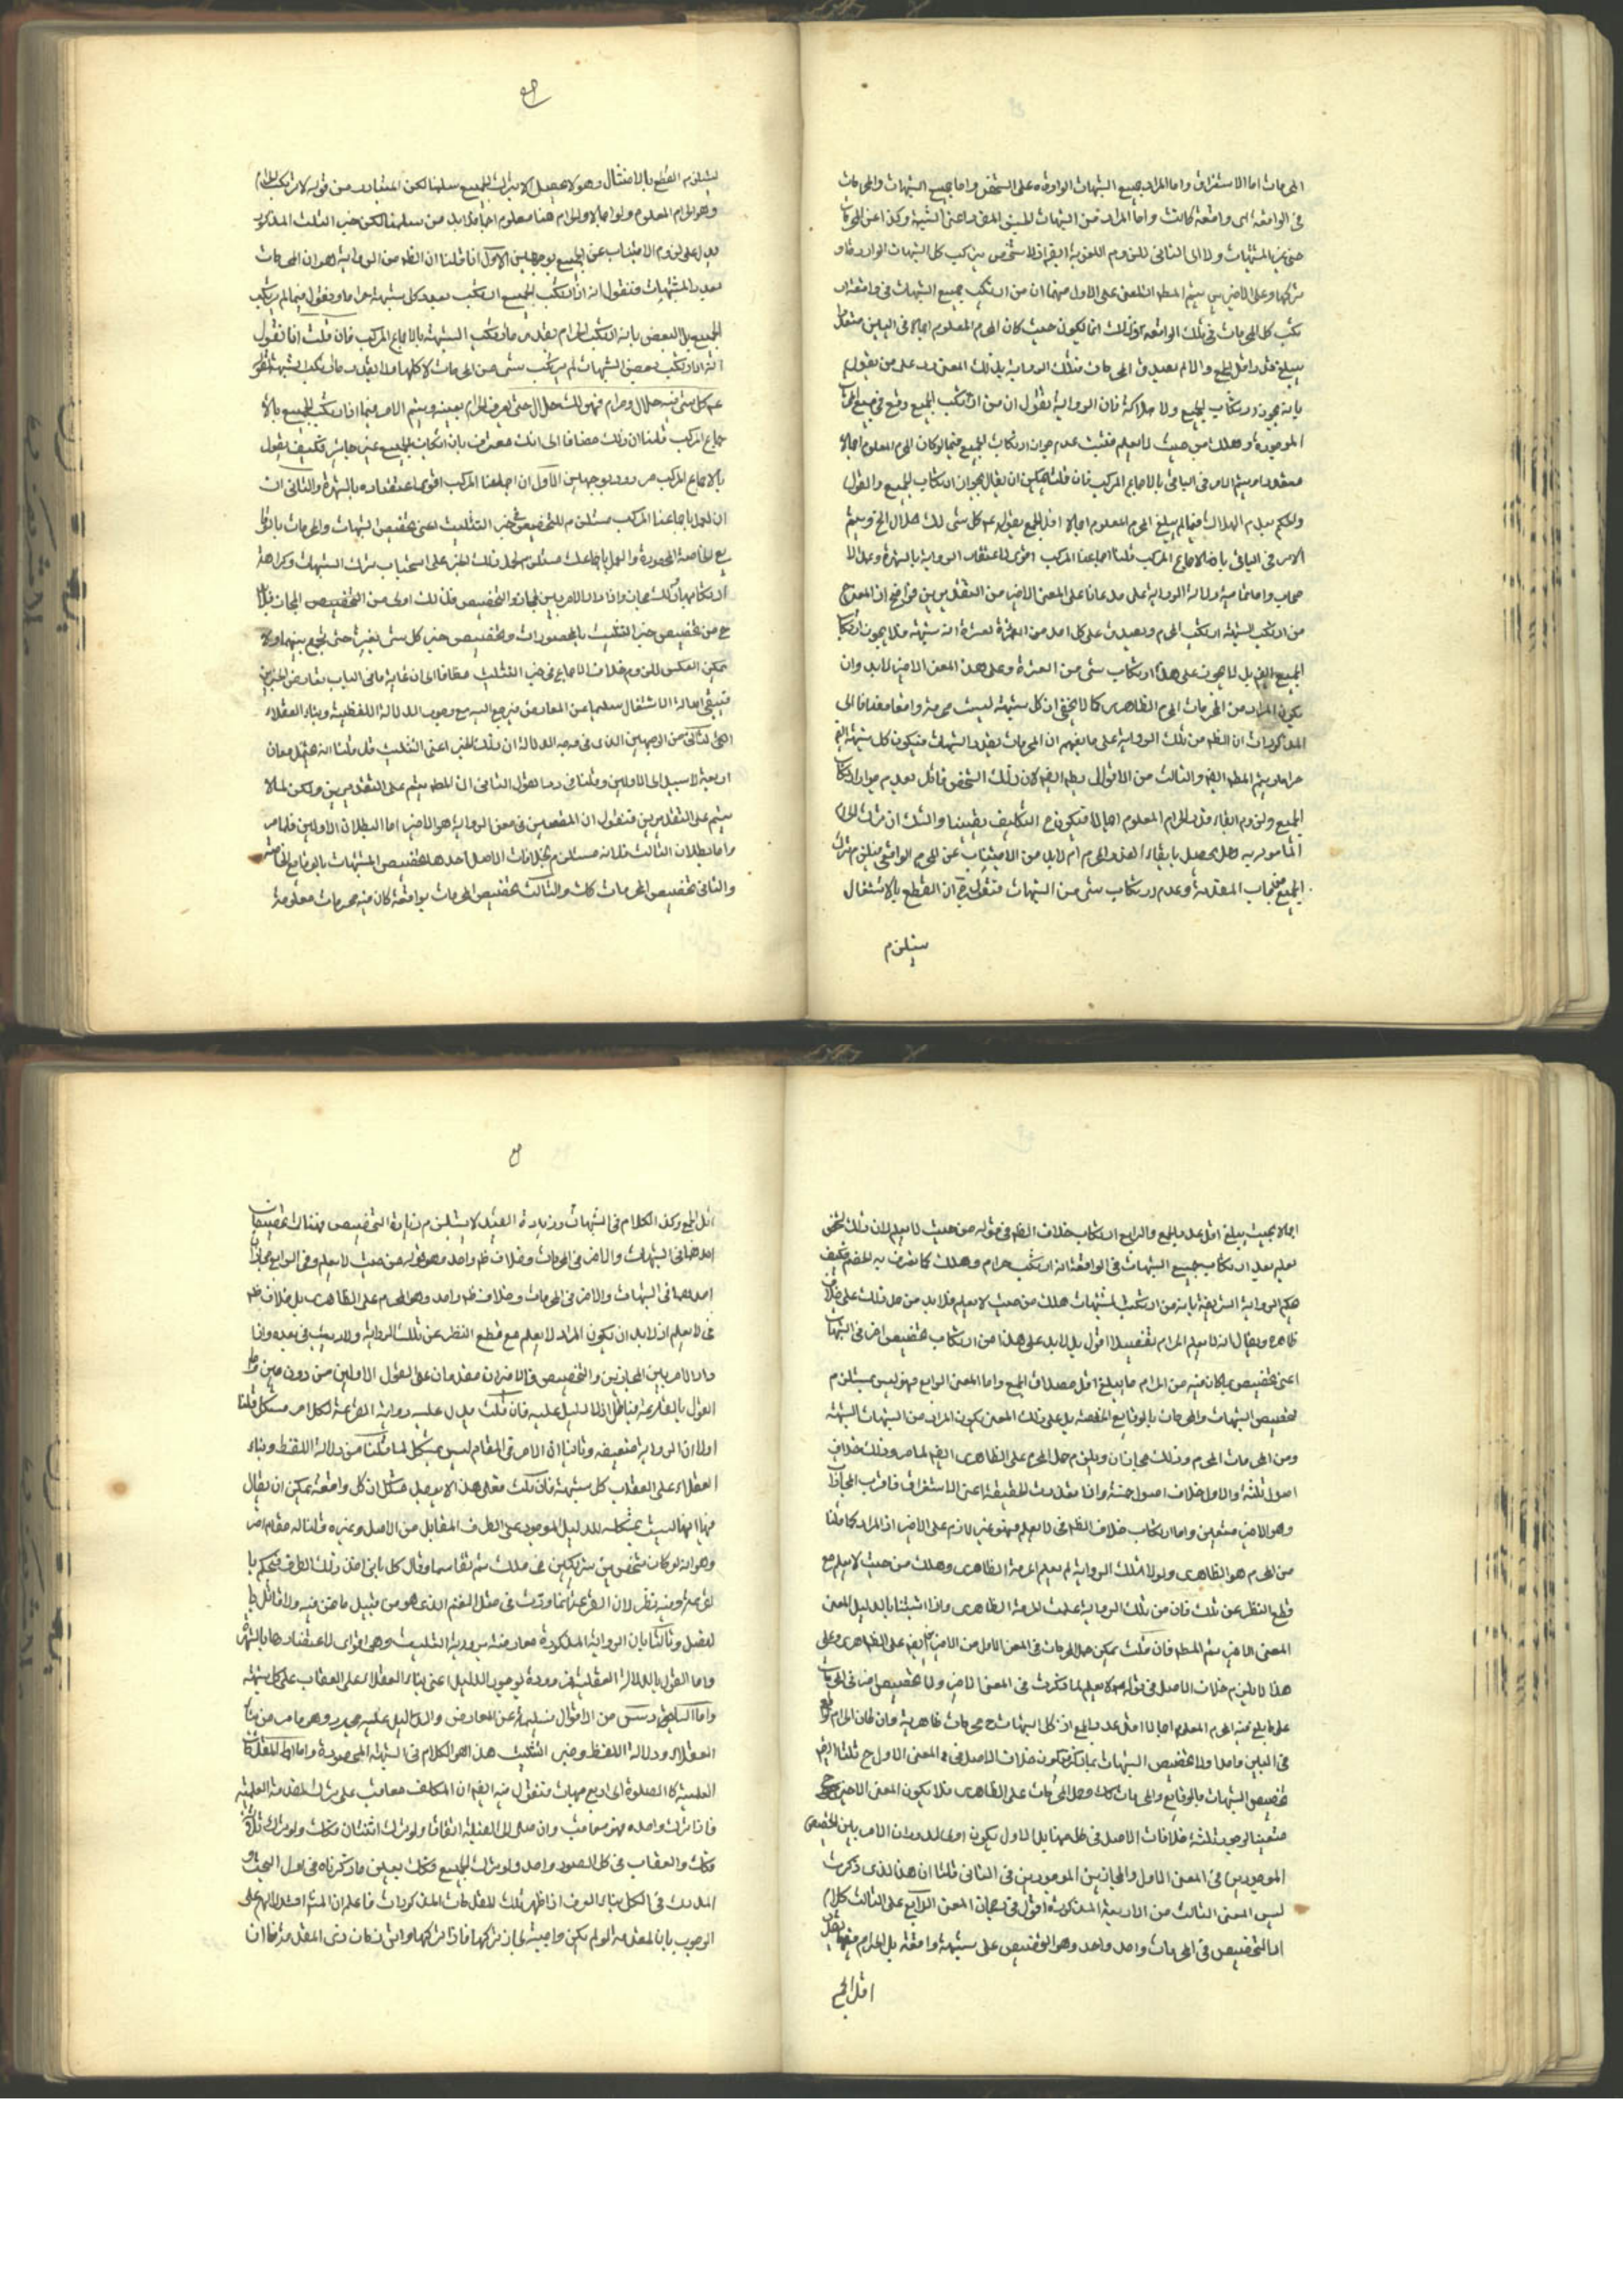 المحرمات اما الاستغراق واما المراد جميع الشبهات الواردة على الشخص واما جميع الشبهات والمحرمات
في الواقعة اى واقعة كانت واما المراد من الشبهات الجنس المفرد اعنى الشبهة وكذا عن المحرمات
يرتكب كل الشبهات الواردة او
يتم المطه ان المعنى على الاول منهما ان من ارتكب جميع الشبهات في واقعة ار
تكب كل المحرمات في تلك الواقعة وذلك انما يكون حيث كان المحرم المعلوم اجمالا في البين
يبلغ اقل الجمع والا لم يصدق المحرمات فتلك الرواية بذلك المعنى رد على من يقول
بانه يجوز ارتكاب الجميع ولا هلاكة فان الرواية تقول ان من ارتكب الجميع وقع في جميع المحرمات
الموجودة وهلك من حيث لا يعلم فثبت عدم جواز ارتكاب الجميع فيما لو كان المحرم المعلوم اجمالا
متعددا ويتم الامر في الباقى بالاجماع المركب فان قلت يمكن ان يقال بجواز ارتكاب الجميع والقول
والحكم بعدم الهلاك فيما لم يبلغ المحرم المعلوم اجمالا اقل الجمع بقوله كل شئ لك حلال الخ ويتم
الامر في الباقى بالاجماع المركب قلنا اجماعنا المركب اقوى لاعتضاد الرواية بالشهرة وبهذا
دلالة الرواية على مدعانا على المعنى الاخير من التقديرين فواضح اذ المعنى ح
من ارتكب الشبهة ارتكب المحرم ويصدق على كل احد من العشرة انه شبهة فلا يجوز ارتكاب
الجميع ايض بل لا يجوز على هذا ارتكاب شئ من العشرة وعلى هذا المعنى الاخير لابد وان
يكون المراد من المحرمات المحرم الظاهرى كما لا يخفى ان كل شبهة ليست محرمة واقعا مضافا الى
المذكورات ان الظه من تلك الرواية على ما يفهم ان المحرمات بقدر الشبهات فيكون كل شبهة
حراما ويتم المطه ايض والثالث من الاقوال بطه ايض لان ذلك الشخص قائل بعدم جواز ارتكاب
الجميع ولزوم ابقاء قدر الحرام المعلوم اجمالا فيكون ح التكليف يقينيا والشك ان ترك الحرام
المأمور به هل يحصل بابقاء المحرم ام لابد من الاجتناب عن المحرم الواقعى فيلزم ترك
الجميع من باب المقدمة وعدم ارتكاب شئ من الشبهات فنقول ح ان القطع بالاشتغال
يستلزم
يستلزم القطع بالامتثال وهو لا يحصل الا بترك الجميع سلمنا لكن المتبادر من قوله لا ترتكب الحرام
وهو الحرام المعلوم ولو اجمالا والحرام هنا معلوم اجمالا سلمنا لكن خبر التثليث المذكور
يدل على لزوم الاجتناب عن الجميع بوجهين الاول انا قلنا ان الظه من الرواية هو ان المحرمات
بعدد المشتبهات فنقول انه اذا ارتكب الجميع ارتكب بعدد كل شبهة حراما ونقول فيما لم يرتكب
الجميع بل البعض بانه ارتكب الحرام بقدر ما ارتكب الشبهة بالاجماع المركب فان قلت انا نقول
انه اذا ارتكب بعض الشبهات لم يرتكب شئ من المحرمات لا كلها ولا بقدر ما ارتكب الشبهة لقوله
كل شئ فيه حلال وحرام فهو لك حلال حتى تعرف الحرام بعينه ويتم الامر فيما اذا ارتكب الجميع بالا
جماع المركب قلنا ان ذلك مضافا الى انك معترف بان ارتكاب الجميع غير جائز فكيف يقول
بالاجماع المركب مردود بوجهين الاول ان اجماعنا المركب اقوى لاعتضاده بالشهرة والثانى ان
ان العمل باجماعنا المركب مستلزم للتخصيص في خبر التثليث اعنى تخصيص الشبهات والمحرمات بالوقا
يع الخاصة المحصورة والعمل باجماعك مستلزم لحمل ذلك الخبر على استحباب ترك الشبهات وكراهة
ارتكابها وذلك مجاز واذا دار الامر بين المجاز والتخصيص فذلك اولى من التخصيص المجاز فلا
ح من تخصيص خبر التثليث بالمحصورات وتخصيص خبر كل شئ بغيره حتى يجمع بينهما ولا
يمكن العكس للزوم خلاف الاجماع في خبر التثليث مضافا الى ان غاية ما في الباب تعارض الخبرين
فتبقى اصالة الاشتغال سليما عن المعارض فيرجع اليه مع وجود الدلالة اللفظية وبناء العقلاء
الوجه الثانى من الوجهين الذى في وجه الدلالة ان ذلك الخبر اعنى التثليث قد قلنا انه يحتمل معان
اربعة لا سبيل الى الاولين وقلنا في رد القول الثانى ان المطه يتم على التقديرين ولكن لما لا
يتم على التقديرين فنقول ان المتعين في معنى الرواية هو الاخير اما البطلان الاولين فلما مر
واما بطلان الثالث فلانه مستلزم لخلافات الاصل احدها تخصيص المشتبهات بالوقايع الخاصة
والثانى تخصيص المحرمات كذلك والثالث تخصيص المحرمات بواقعة كان فيه محرمات معلومة
اجمالا بحيث يبلغ اقل عدد الجمع والرابع ارتكاب خلاف الظه في قوله من حيث لا يعلم لان ذلك الشخص
يعلم بعد ارتكاب جميع الشبهات في الواقعة انه ارتكب حرام وهلك كما تعرف به الخصم فكيف
يحكم الرواية الشريفة بانه من ارتكب المشتبهات هلك من حيث لا يعلم فلابد من حمل ذلك على خلاف
ظاهره ويقال انه لا يعلم الحرام تفصيلا اقول بل لابد على هذا من ارتكاب تخصيص اخر في الشبهات
اعنى تخصيص بما كان فيه من الحرام ما يبلغ اقل مصداق الجمع واما المعنى الرابع فهو ليس مستلزم
تخصيص الشبهات والمحرمات بالوقايع الخاصة بل على ذلك المعنى يكون المراد من الشبهات الشبهة
ومن المحرمات المحرم وذلك مجازان ويلزم حمل المحرم على الظاهرى ايض لما مر وذلك خلاف
اصول ثلثة والاول خلاف اصول خمسة واذا تعذرت الحقيقة اعنى الاستغراق فاقرب المجازات
وهو الاخير متعين واما ارتكاب خلاف الظه في لا يعلم فهو غير لازم على الاخير اذ المراد كما قلنا
من المحرم هو الظاهرى ولولا تلك الرواية لم يعلم الحرمة الظاهرى وهلك من حيث لا يعلم مع
قطع النظر عن تلك فان من تلك الرواية علمت الحرمة الظاهرى واذا اثبتنا بالدليل المعنى
المعنى الاخير يتم المطه فان قلت يمكن حمل المحرمات في المعنى الاول من الاخيرين ايض على الظاهرى وعلى
هذا لا يلزم خلاف الاصل في قوله لا يعلم لما ذكرت في المعنى الاخير ولا تخصيص اخر في المحرمات
على ما يبلغ فيه المحرم المعلوم اجمالا اقل عدد الجمع اذ كل الشبهات ح محرمات ظاهرية وان كان الحرام
في البين واحدا ولا تخصيص الشبهات بما ذكر فيكون خلاف الاصل في المعنى الاول ح ثلثة ايض
تخصيص الشبهات بالوقايع والمحرمات كذلك وحمل المحرمات على الظاهرى فلا يكون المعنى الاخير ح
متعينا لوجود ثلثة خلافات الاصل في كل منهما بل الاول يكون اولى لدوران الامر بين التخصيص
الموجودين في المعنى الاول والمجازين الموجودين في الثانى قلنا ان هذا الذى ذكرت
ليس المعنى الثالث من الاربعة المذكورة اقول في رجحان المعنى الرابع على الثالث كلام
اذ التخصيص في المحرمات واحد واحد وهو التخصيص على شبهة واقعة بل الحرام فيها بقدر
اقل الجمع
اقل الجمع وكذا الكلام في الشبهات وزيادة القيد لا يستلزم زيادة التخصيص فهناك تخصيصان
احدهما في الشبهات والاخر في المحرمات وخلاف ظه واحد وهو قوله من حيث لا يعلم وفي الرابع مجازان
احدهما في الشبهات والاخر في المحرمات وخلاف ظه واحد وهو المحرم على الظاهرى بل خلاف ظه
في لا يعلم اذ لابد ان يكون المراد لا يعلم مع قطع النظر عن تلك الرواية ولا ريب في بعده واذا
دار الامر بين المجازين والتخصيص فالاخيران مقدمان على القول الاولين من دون مين واما
القول بالقرعة فباطل اذ لا دليل عليه فان قلت يدل عليه رواية القرعة لكل امر مشكل قلنا
اولا ان الرواية ضعيفة وثانيا ان الامر في المقام ليس بمشكل لما قلنا من دلالة اللفظ وبناء
العقلاء على العقاب كل شبهة فان قلت فعلى هذا لا يحصل مشكل اذ كل واقعة يمكن ان يقال
فيها انها ليست بمشكلة للدليل الموجود على الطرف المقابل من الاصل وغيره قلنا له مقام اخر
وهو انه لو كان شخصين شريكين في ملك ثم تقاسما وقال كل بانى اخذ ذلك الطرف فيحكم با
لقرعة وفيه نظر لان القرعة انما وردت في مثل الغنم الذى هو من قبيل ما نحن فيه ولا قائل با
لفصل وثالثا بان الرواية المذكورة معارضة برواية التثليث وهى اقوى لاعتضادها بالشهرة
واما القول بالدلالة العقلية فمردودة لوجود الدليل اعنى بناء العقلاء على العقاب على كل شبهة
من الاقوال سليمة عن المعارض والدليل عليه موجود وهو ما مر من بناء
العقلاء ودلالة اللفظ وخبر التثليث هذا هو الكلام في الشبهة المحصورة واما المقدمات
العلمية كالصلوة الى اربع جهات فنقول فيه ايض ان المكلف معاقب على ترك المقدمة العلمية
فاذا ترك واحده فهو معاقب وان صلى الى القبلة اتفاقا ولو ترك اثنتان فكذلك ولو ترك ثلاثة
فكذلك والعقاب في كل الصور واحد ولو ترك الجميع فكذلك بعين ما ذكرناه في اول البحث و
المدرك في الكل بناء العرف اذا ظهر تلك المقدمات المذكورات فاعلم ان استدلالهم على
الوجوب بان المقدمة لو لم يكن واجبة لجاز تركها فاذا تركها وان كان ذى المقدمة فان